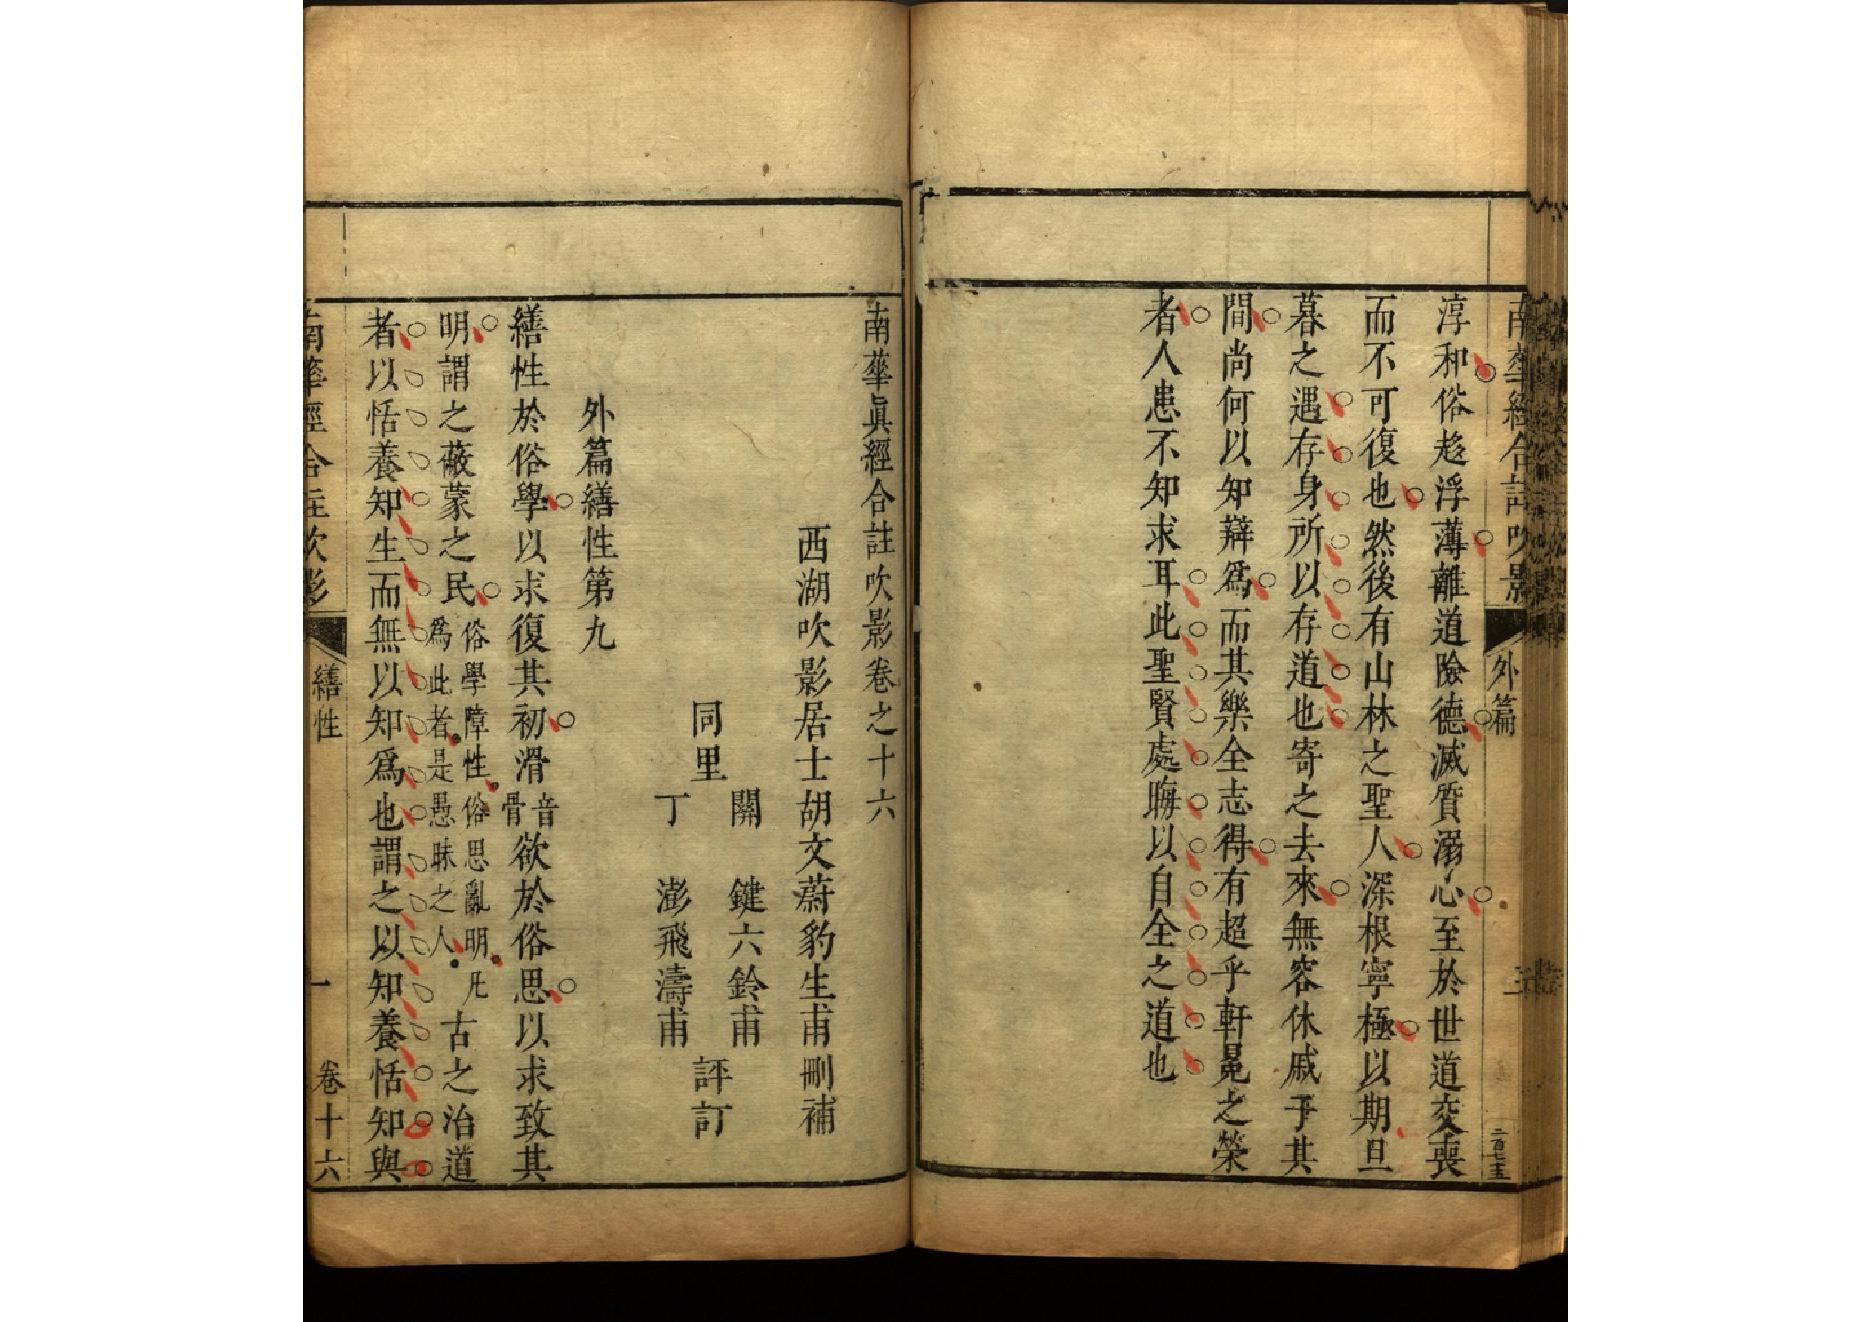 南華經合註吹影
外篇
二百七五
淳和俗趍浮薄離道險德滅質溺心至於世道交喪
而不可復也然後有山林之聖人深根寧極以期旦
暮之遇存身所以存道也寄之去來無容休戚于其
間尚何以知辯爲而其樂全志得有超乎軒冕之榮
者人患不知求耳此聖賢處晦以自全之道也
南華眞經合註吹影卷之十六
西湖吹影居士胡文蔚豹生甫刪補
同里
關　鍵六鈴甫
丁　澎飛濤甫
評訂
外篇繕性第九
繕性於俗學以求復其初滑音骨欲於俗思以求致其
明謂之蔽蒙之民俗學障性俗思亂明凡爲此者是愚昧之人古之治道
者以恬養知生而無以知爲也謂之以知養恬知與
南華經合註吹影
繕性
一
卷十六